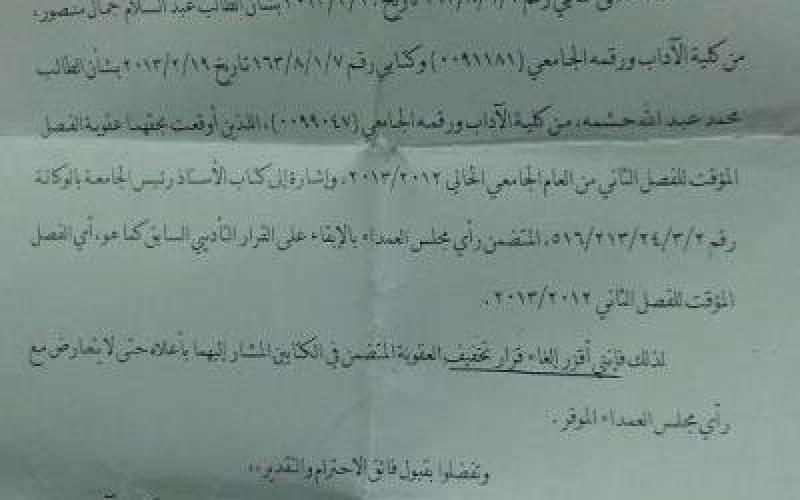 بشأن الطالب عبد السلام جمال منصور،
من كلية الآداب ورقمه الجامعي (٠٠٩١١٨١) وكتابي رقم ١٦٣/٨/١/٧ تاريخ ٢٠١٣/٢/١٩ بشأن الطالب
محمد عبد الله حشمه، من كلية الآداب ورقمه الجامعي (٠٠٩٩٠٤٧)، اللذين أوقعت بحقهما عقوبة الفصل
المؤقت للفصل الثاني من العام الجامعي الحالي ٢٠١٣/٢٠١٢، وإشارة إلى كتاب الأستاذ رئيس الجامعة بالوكالة
رقم ٥١٦/٢١٣/٢٤/٣/٢، المتضمن رأي مجلس العمداء بالإبقاء على القرار التأديبي السابق كما هو، أي الفصل
المؤقت للفصل الثاني ٢٠١٣/٢٠١٢.
لذلك فإنني أقرر إلغاء قرار تخفيف العقوبة المتضمن في الكتابين المشار إليهما بأعلاه حتى لا يتعارض مع
رأي مجلس العمداء الموقر.
وتفضلوا بقبول فائق الاحترام والتقدير،،